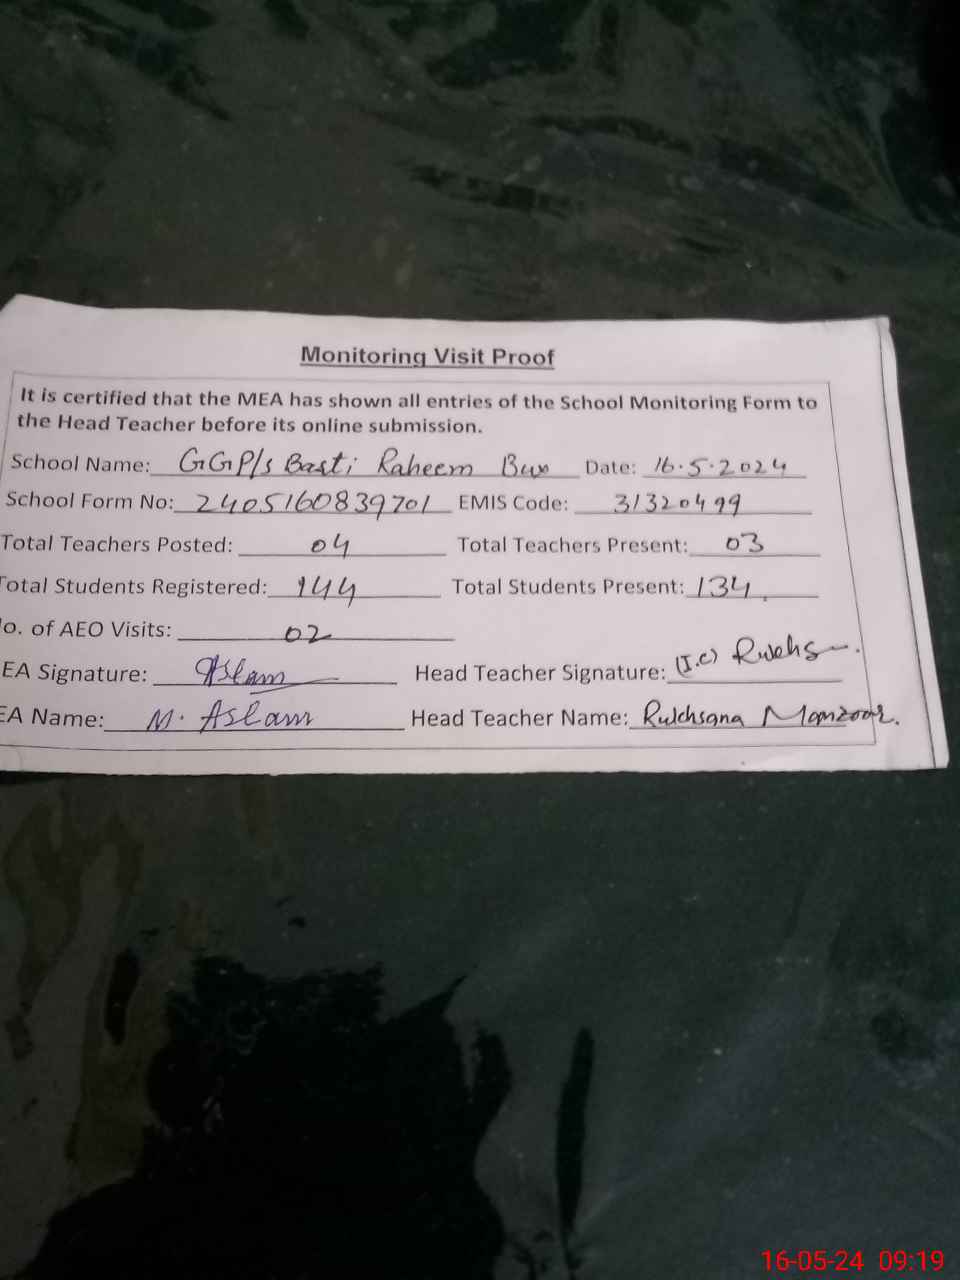 Monitoring Visit Proof
It is certified that the MEA has shown all entries of the School Monitoring Form to
the Head Teacher before its online submission.
School Name: GGP/s Basti Raheem Bux Date: 16.5.2024
School Form No: 2405160839701 EMIS Code: 31320499
Total Teachers Posted: 04 Total Teachers Present: 03
Total Students Registered: 144 Total Students Present: 134
o. of AEO Visits: 02
EA Signature: Aslam Head Teacher Signature: (I.C)
EA Name: M. Aslam Head Teacher Name: Rukhsana Manzoor.
16-05-24 09:19